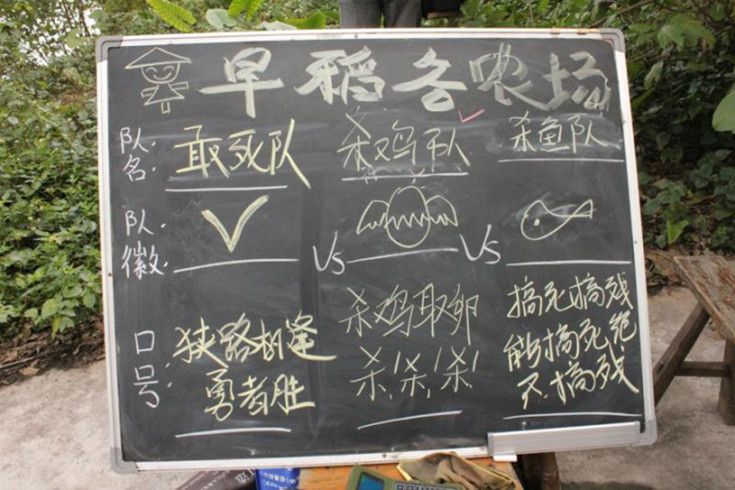 早稻各农场
队名: 敢死队 杀鸡队 杀鱼队
队徽: VS VS
口号: 狭路相逢 勇者胜
杀鸡取卵 杀!杀!杀!
搞死搞残
能搞死绝
不搞残